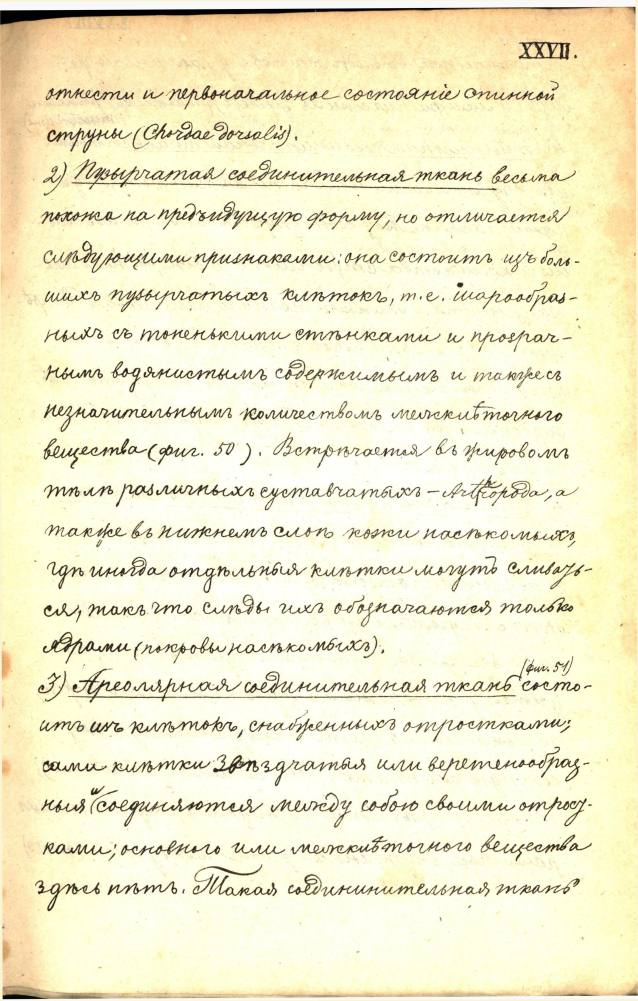 XXVII.
отнести и первоначальное состояніе спинной
струны (Chordae dorsalis).
2) Пузырчатая соединительная ткань весьма
похожа на предъидущую форму, но отличается
слѣдующими признаками: она состоитъ изъ боль-
шихъ пузырчатыхъ клѣтокъ, т.е. шарообраз-
ныхъ съ тоненькими стѣнками и прозрач-
нымъ водянистымъ содержимымъ и также съ
незначительнымъ количествомъ межклѣточнаго
вещества (фиг. 50). Встрѣчается въ жировомъ
тѣлѣ различныхъ суставчатыхъ – Arthropoda, а
также въ нижнемъ слоѣ кожи насѣкомыхъ,
гдѣ иногда отдѣльныя клѣтки могутъ сливать-
ся, такъ что слѣды ихъ обозначаются только
ядрами (покровы насѣкомыхъ).
3) Ареолярная соединительная ткань (фиг. 51) состо-
итъ изъ клѣтокъ, снабженныхъ отростками;
сами клѣтки звѣздчатыя или веретенообраз-
ныя и соединяются между собою своими отрост-
ками; основного или межклѣточного вещества
здѣсь нѣтъ. Такая соедининительная ткань